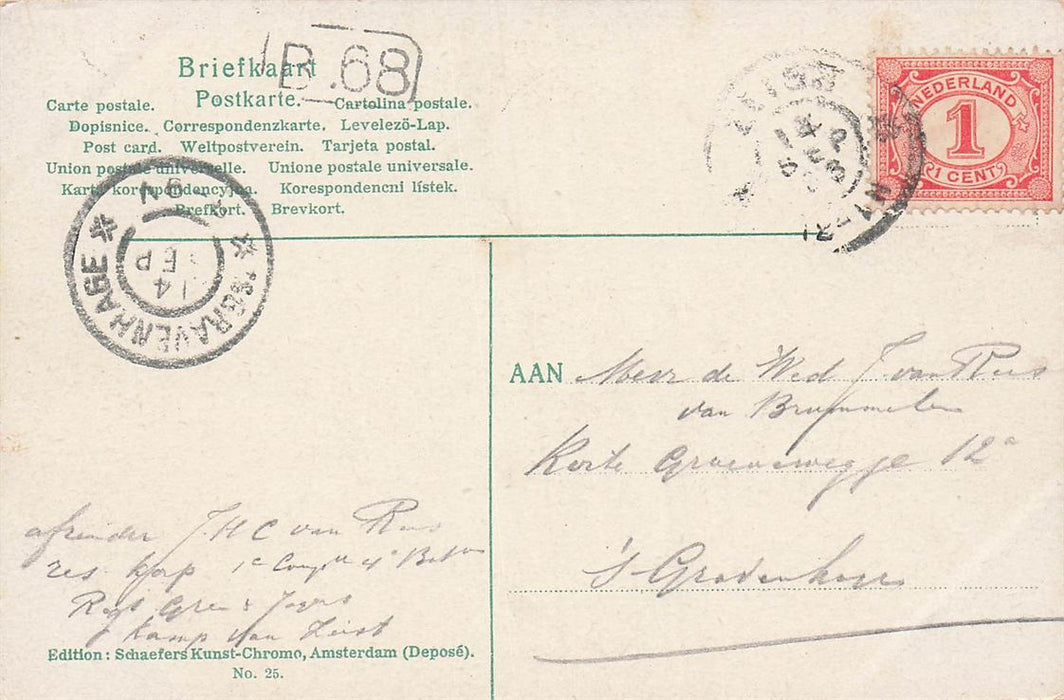 Briefkaart
B.68
Postkarte.
Carte postale. Cartolina postale.
Dopisnice. Correspondenzkarte. Levelező-Lap.
Post card. Weltpostverein. Tarjeta postal.
Union postale universelle. Unione postale universale.
Karta korespondencyjna. Korespondencni lístek.
Brefkort. Brevkort.
NEDERLAND
1
1 CENT
'SGRAVENHAGE
14
SEP
AAN Mevr de Wed J van Rees
van Brummelen
Korte 12a
's-Gravenhage
afzender J.H.C van Rees
res. korp 1e Compie 4e Baton
Regt Gren & Jagers
Kamp van Zeist
Edition: Schaefers Kunst-Chromo, Amsterdam (Deposé).
No. 25.